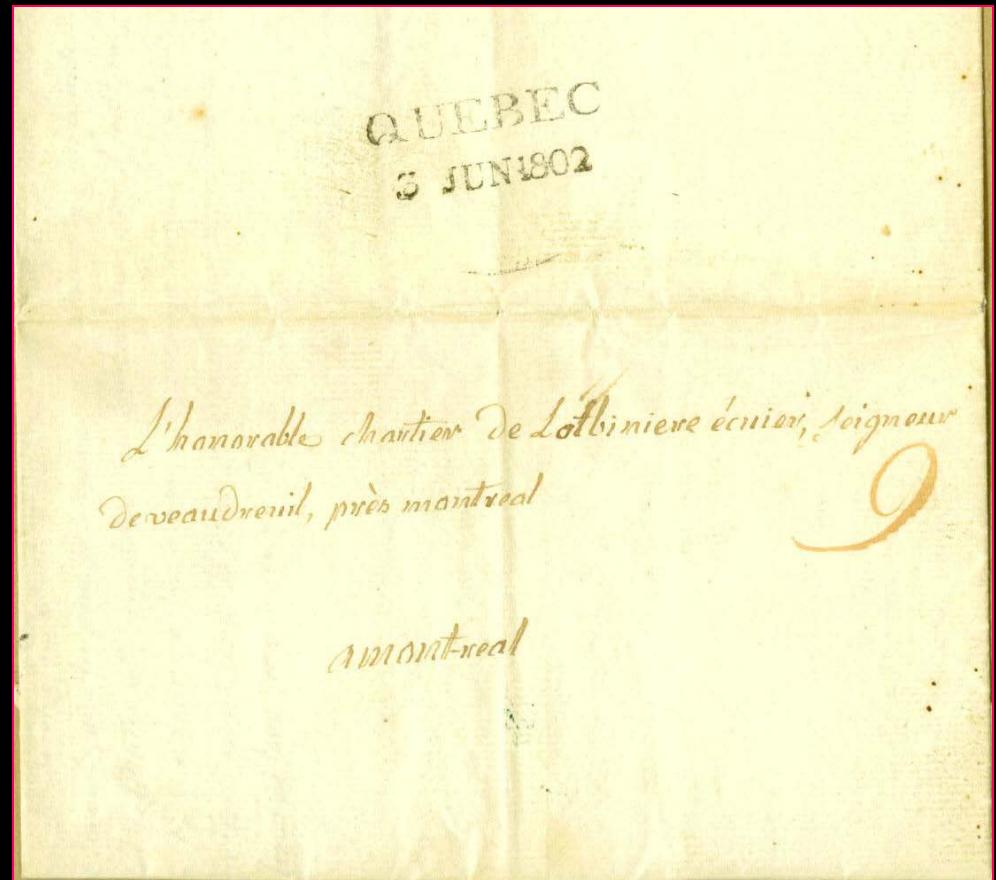 QUEBEC
3 JUN 1802
L'honorable chartier De Lotbiniere écuier, seigneur
De veaudreuil, près montreal
9
a montreal